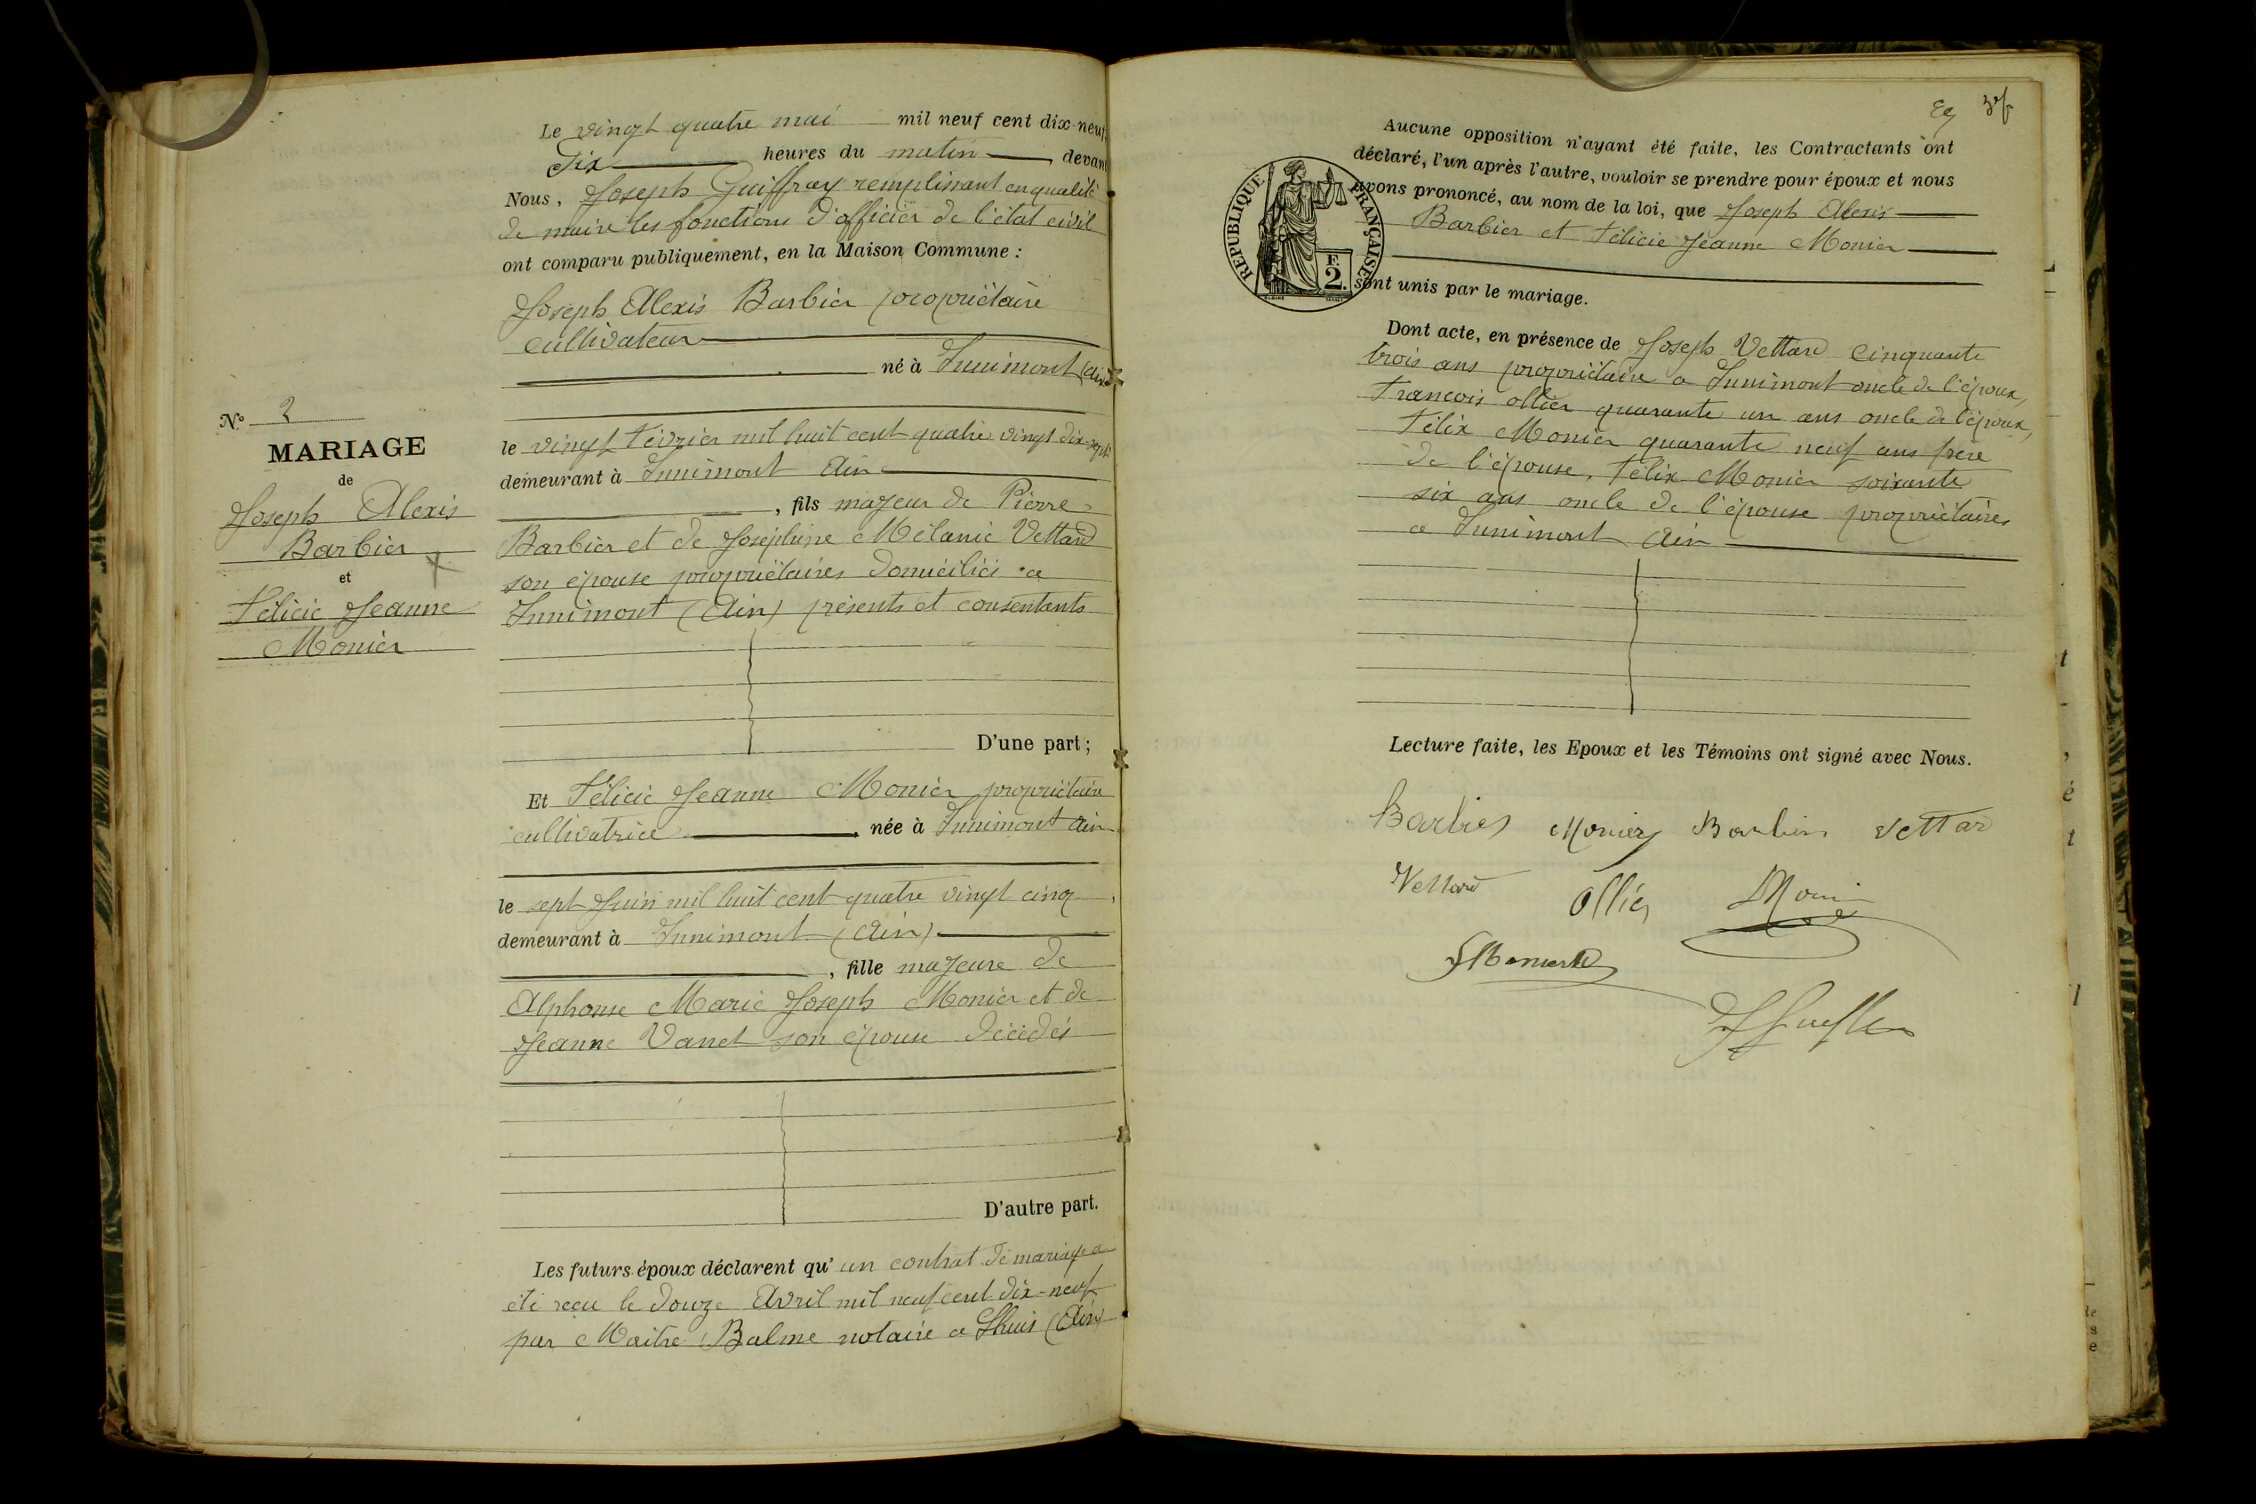 Le vingt quatre mai mil neuf cent dix-neuf
Dix heures du matin, devant
Nous, Joseph Guiffray remplissant en qualité
de maire les fonctions d'officier de l'état civil
ont comparu publiquement, en la Maison Commune :
Joseph Alexis Barbier propriétaire
cultivateur
né à Innimont (Ain)
le vingt Février mil huit cent quatre vingt dix-sept
demeurant à Innimont Ain
, fils majeur de Pierre
Barbier et de Joséphine Mélanie Vettard
son épouse propriétaires domiciliés a
Innimont (Ain) présents et consentants
D'une part ;
N° 2
MARIAGE
de
Joseph Alexis
Barbier
et
Félicie Jeanne
Monier
Et Félicie Jeanne Monier propriétaire
cultivatrice, née à Innimont Ain
le sept Juin mil huit cent quatre vingt cinq
demeurant à Innimont (Ain)
, fille majeure de
Alphonse Marie Joseph Monier et de
Jeanne Vanet son épouse décédés
D'autre part.
Les futurs époux déclarent qu'un contrat de mariage a
été reçu le douze Avril mil neuf cent dix-neuf
par Maitre Balme notaire a Lhuis (Ain)
Aucune opposition n'ayant été faite, les Contractants ont
déclaré, l'un après l'autre, vouloir se prendre pour époux et nous
avons prononcé, au nom de la loi, que Joseph Alexis
Barbier et Félicie Jeanne Monier
sont unis par le mariage.
RÉPUBLIQUE FRANÇAISE
F.
2.
Dont acte, en présence de Joseph Vettard Cinquante
trois ans propriétaire a Innimont oncle de l'époux,
Francois ollier quarante un ans oncle de l'époux,
Félix Monier quarante neuf ans frere
de l'épouse, Félix Monier soixante
six ans oncle de l'épouse propriétaires
a Innimont Ain
Lecture faite, les Epoux et les Témoins ont signé avec Nous.
Barbier Monier Barbier Vettard
Vettard Ollier Monier